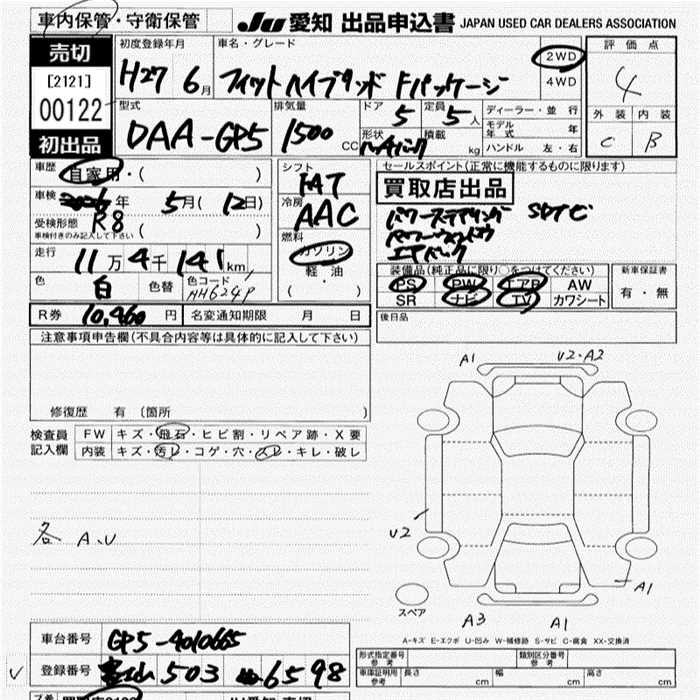 車内保管・守衛保管
JU 愛知 出品申込書 JAPAN USED CAR DEALERS ASSOCIATION
売切
[2121]
00122
初出品
初度登録年月
H27 6月
車名・グレード
フィットハイブリッド Fパッケージ
2WD
4WD
評価点
4
外装 内装
C B
型式
DAA-GP5
排気量
1500 CC
ドア 5
定員 5人
形状
積載 kg
ディーラー・並行
モデル年式 年
ハンドル 左・右
車歴
自家用・( )
車検
年 5月(12日)
受検形態
車検付きのみ記入して下さい
R8 ( )
走行
11万4千141km
色 白 色替 色コード NH624P
シフト
FAT
冷房
AAC
燃料
ガソリン
軽・油
( )
セールスポイント(正常に機能するものに限ります)
買取店出品
パワーステアリング
エアバック
装備品(純正品に限り○をつけてください)
PS PW エアB AW
SR ナビ TV カワシート
新車保証書
有・無
R券 10,460円 名変通知期限 月 日
後日品
注意事項申告欄(不具合内容等は具体的に記入して下さい)
修復歴 有 〔箇所 〕
検査員記入欄
FW キズ・飛石・ヒビ割・リペア跡・X要
内装 キズ・汚レ・コゲ・穴・スレ・キレ・破レ
各 A、U
A1
U2・A2
U2
A1
A3
A1
スペア
A-キズ E-エクボ U-凹み W-補修跡 S-サビ C-腐食 XX-交換済
車台番号 GP5-4010665
登録番号 503 6598
形式指定番号 参考
類別区分番号 参考
車庫証明用 参考 長さ cm 幅 cm 高さ cm